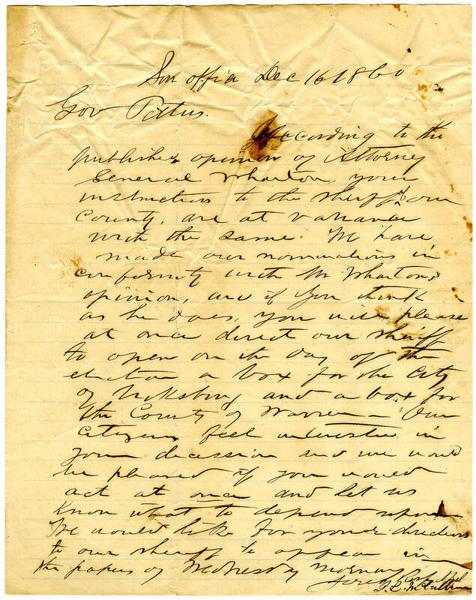 Sun office Dec 16 1860
Gov Pettus.
According to the
published opinion of Attorney
General Wharton your
instructions to the sheriff of our
County, are at variance
with the same. We have
made our nominations in
conformity with Mr Whartons
opinion, and if you think
as he does, you will please
at once direct our sheriff
to open on the day of the
election a box for the City
of Vicksburg and a box for
the County of Warren — Our
Citizens feel interested in
your decission and we would
be pleased if you would
act at once and let us
know what to depend upon
We would like for your directions
to our sheriff to appear in
the papers of Wednesday morning